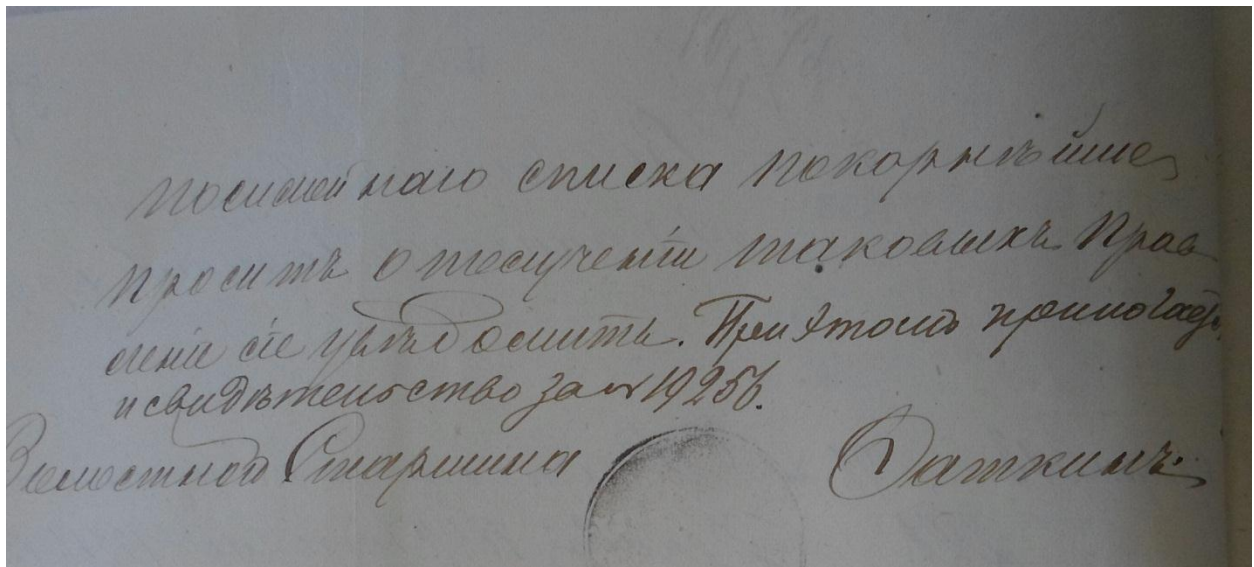 посемейнаго списка покорнѣйше
проситъ о полученіи таковыхъ Прав
леніе сіе увѣдомить. При этомъ прилагаетъ
и свидѣтельство за № 19256.
Волостной Старшина